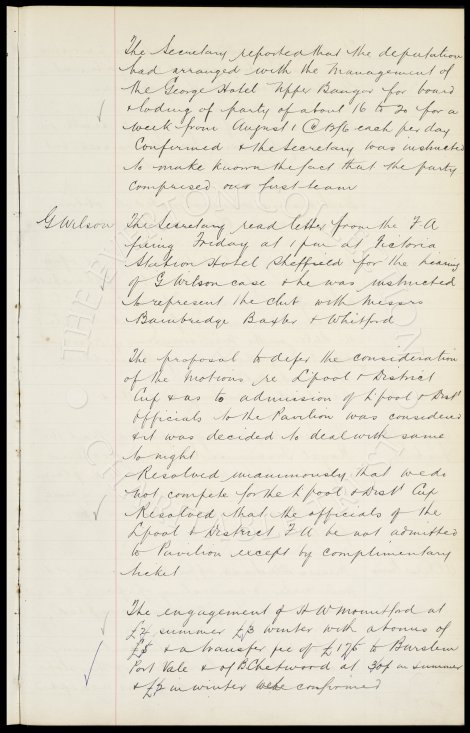 The Secretary reported that the deputation
had arranged with the Management of
the George Hotel Upper Bangor for board
& lodging of party of about 16 to 20 for a
week from August 1 @ 8/6 each per day
Confirmed & the Secretary was instructed
to make known the fact that the party
comprised our first team
G Wilson
The Secretary read letter from the F A
fixing Friday at 1 pm at Victoria
Station Hotel Sheffield for the hearing
of G Wilson case & he was instructed
to represent the club with Messrs
Bainbridge Baxter & Whitford
The proposal to defer the consideration
of the Motions re Lpool & District
Cup & as to admission of Lpool & Dist
officials to the Pavilion was considered
& it was decided to deal with same
to night
Resolved unanimously that we do
not compete for the Lpool & Dist Cup
Resolved that the officials of the
Lpool & District F A be not admitted
to Pavilion except by complimentary
ticket
The engagement of H W Mountford at
summer £3 winter with a bonus of
& a transfer fee of £175 to Burslem
Port Vale & of B Chetwood at 30/ in summer
& in winter were confirmed